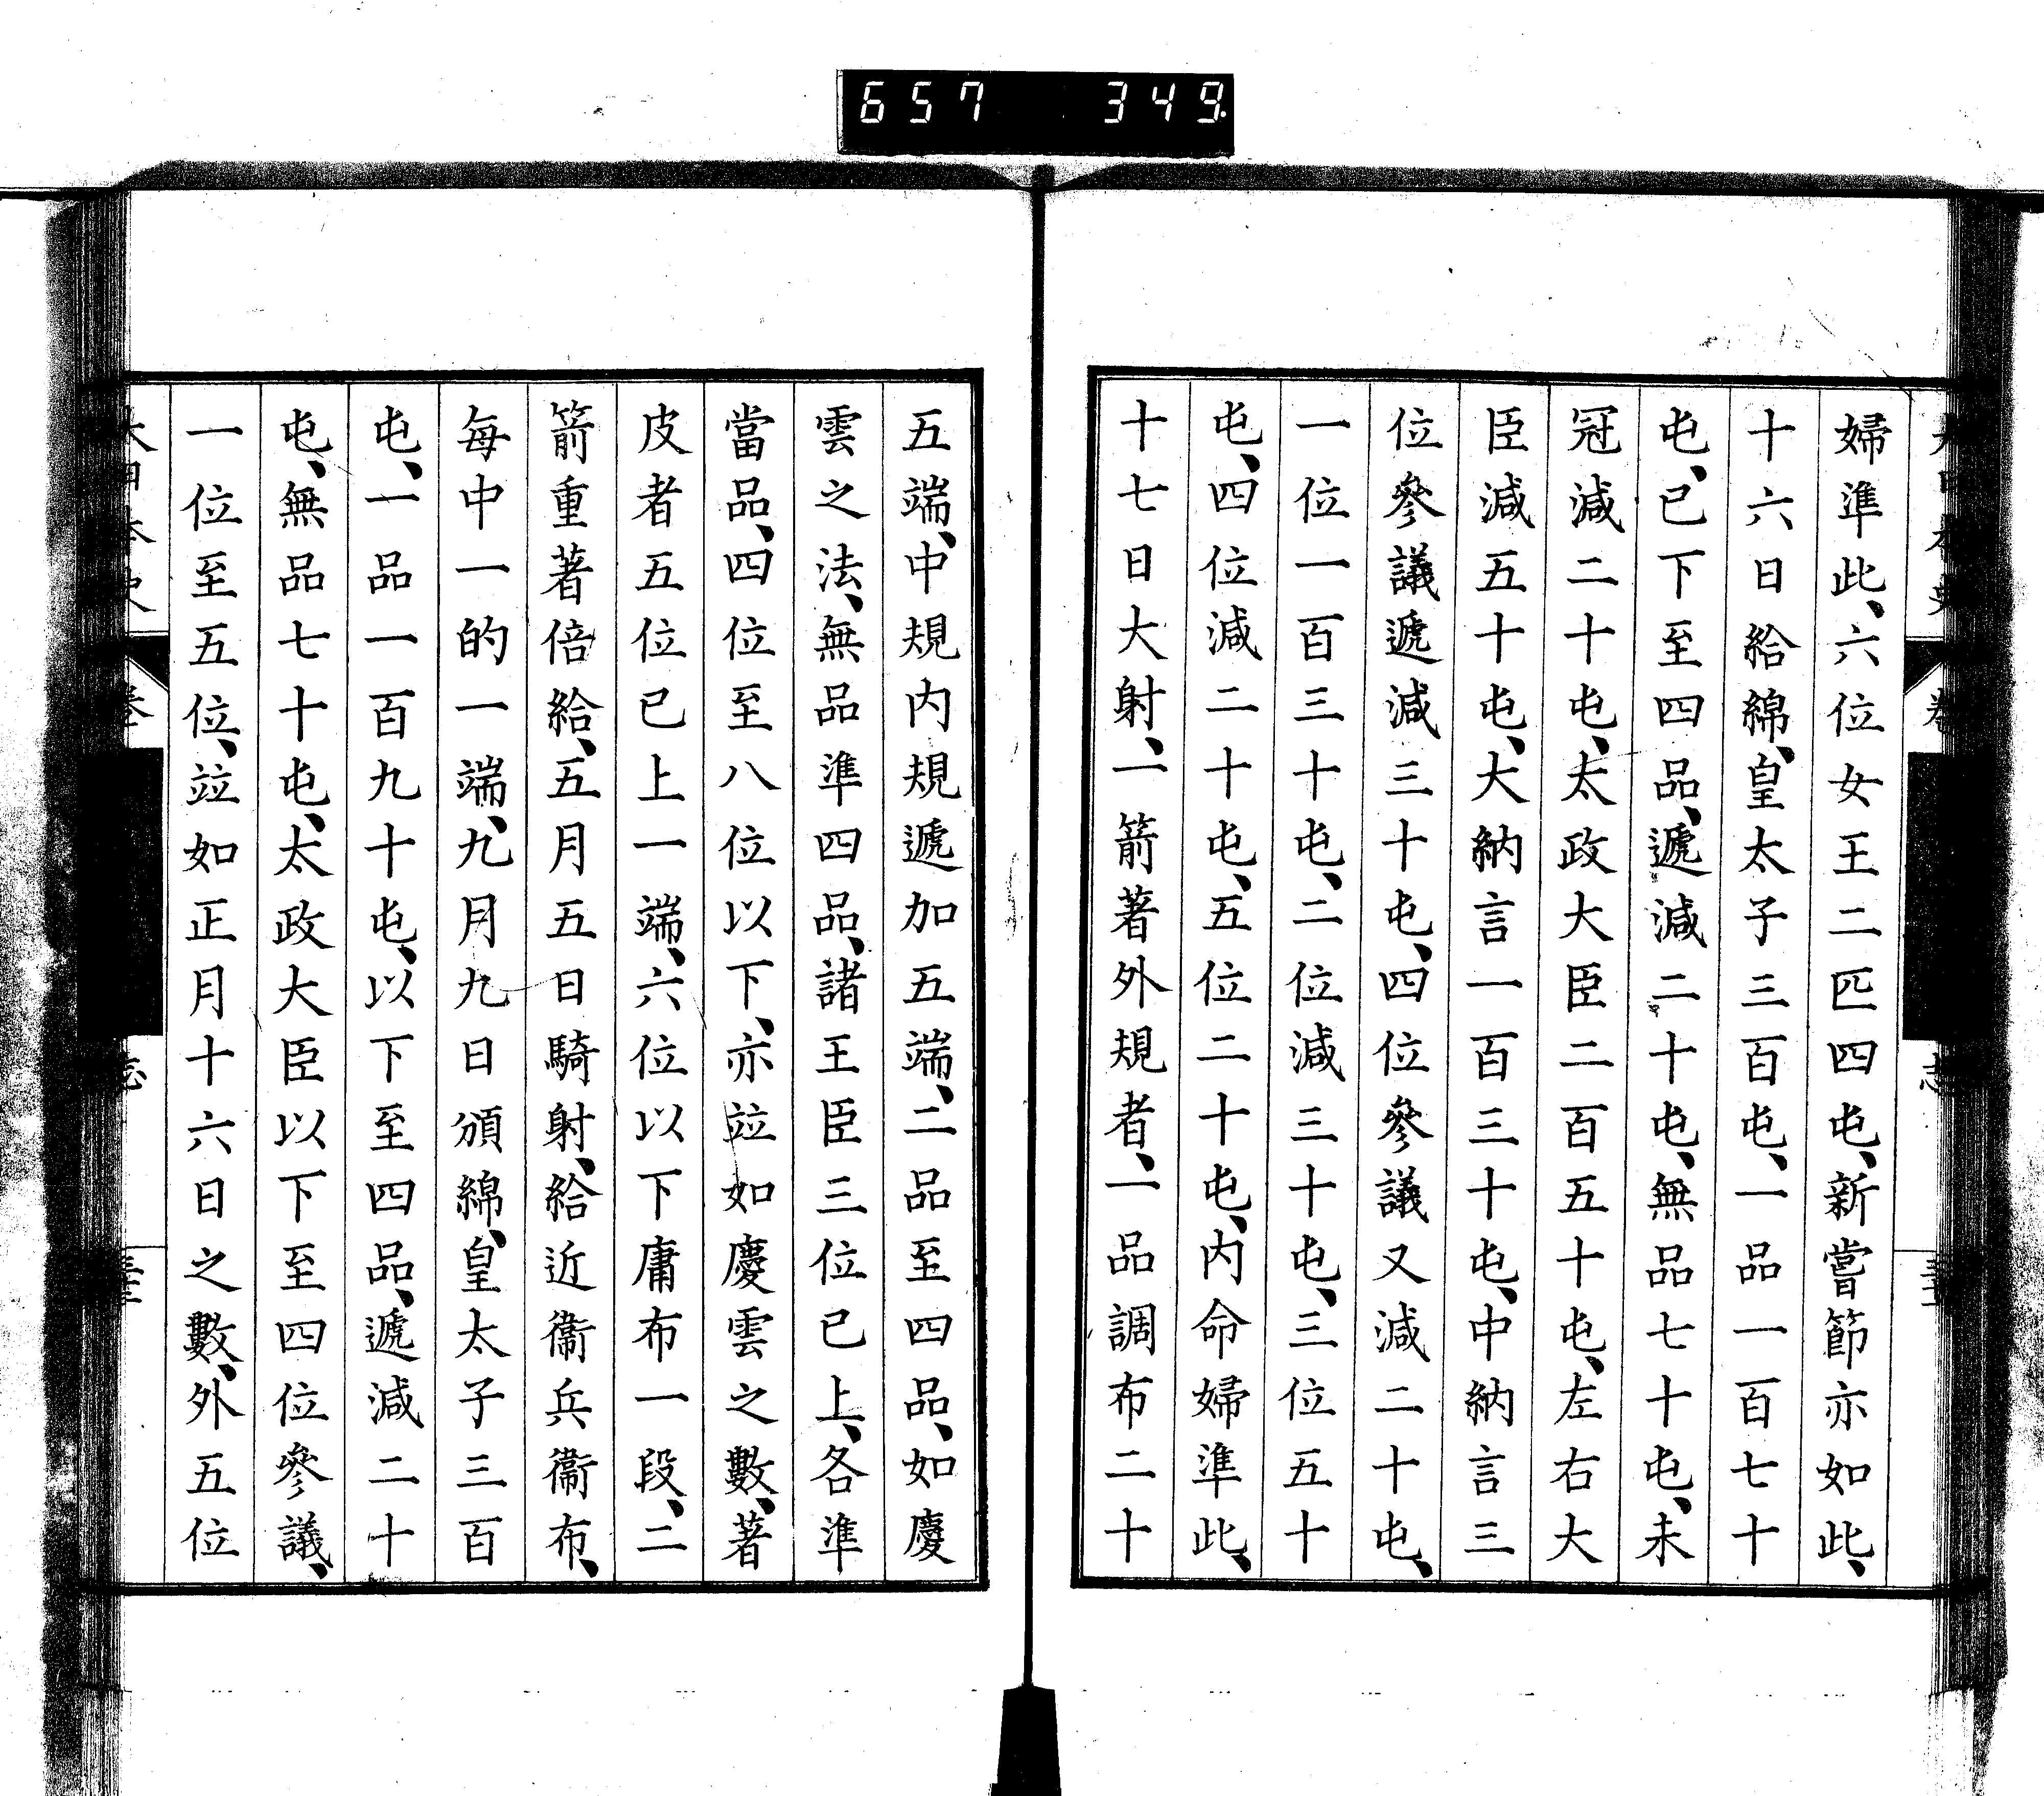 657 349
婦準此、六位女王二匹四屯、新嘗節亦如此、
十六日給綿、皇太子三百屯、一品一百七十
屯、已下至四品、遞減二十屯、無品七十屯、未
冠減二十屯、太政大臣二百五十屯、左右大
臣減五十屯、大納言一百三十屯、中納言三
位參議遞減三十屯、四位參議又減二十屯、
一位一百三十屯、二位減三十屯、三位五十
屯、四位減二十屯、五位二十屯、内命婦準此、
十七日大射、一箭著外規者、一品調布二十
五端、中規内規遞加五端、二品至四品、如慶
雲之法、無品準四品、諸王臣三位已上、各準
當品、四位至八位以下、亦竝如慶雲之數、著
皮者五位已上一端、六位以下庸布一段、二
箭重著倍給、五月五日騎射、給近衞兵衞布、
每中一的一端、九月九日頒綿、皇太子三百
屯、一品一百九十屯、以下至四品、遞減二十
屯、無品七十屯、太政大臣以下至四位參議、
一位至五位、竝如正月十六日之數、外五位